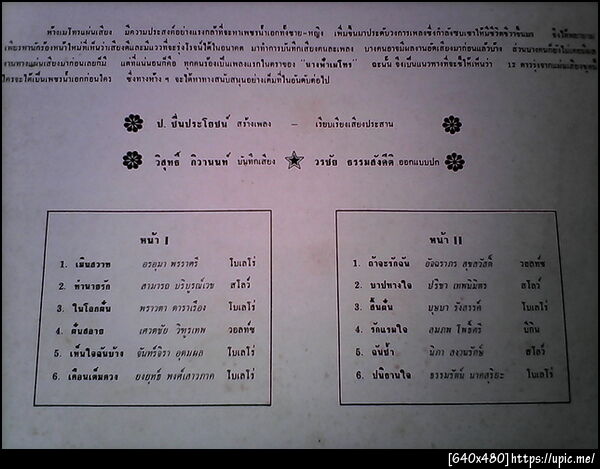 ห้างเมโทรแผ่นเสียง มีความประสงค์อย่างแรงกล้าที่จะหาเพชรน้ำเอกทั้งชาย-หญิง เพิ่มขึ้นมาประดับวงการเพลงซึ่งกำลังซบเซาให้มีชีวิตชีวาขึ้นมา จึงได้พยายาม
เพียรหานักร้องหน้าใหม่ที่เห็นว่าเสียงดีและมีแววที่จะรุ่งโรจน์ได้ในอนาคต มาทำการบันทึกเสียงคนละเพลง บางคนอาจมีผลงานอัดเสียงมาก่อนแล้วบ้าง ส่วนบางคนก็ยังไม่เคยมีผล
งานทางแผ่นเสียงมาก่อนเลยก็มี แต่ที่แน่นอนก็คือ ทุกคนร้องเป็นเพลงแรกในตราของ "นางฟ้าเมโทร" ฉะนั้น จึงเป็นแนวทางที่จะชี้ให้เห็นว่า 12 ดาวรุ่งจากแผ่นเสียงชุดนี้
ใครจะได้เป็นเพชรน้ำเอกก่อนใคร ซึ่งทางห้าง ฯ จะได้หาทางสนับสนุนอย่างเต็มที่ในอันดับต่อไป
ป. ชื่นประโยชน์ สร้างเพลง – เรียบเรียงเสียงประสาน
วิสุทธิ์ ภิวานนท์ บันทึกเสียง วรชัย ธรรมสังคีติ ออกแบบปก
หน้า I
1. เมินสวาท อรอุมา พรราตรี โบเลโร่
2. ทำนายรัก สามารถ บริบูรณ์เวช สโลว์
3. ในโลกฝัน พราวตา ดาราเรือง โบเลโร่
4. ฝันสลาย เศวตชัย วิฑูรเทพ วอลทซ์
5. เห็นใจฉันบ้าง จันทร์จิรา อุดมผล โบเลโร่
6. เดือนเต็มดวง ยงยุทธ์ พงศ์เสาวภาค โบเลโร่
หน้า II
1. ถ้าจะรักฉัน อัจฉราภร สุขสวัสดิ์ วอลทซ์
2. บาปทางใจ ปรีชา เทพนิมิตร สโลว์
3. สิ้นฝัน บุษบา รังสรรค์ โบเลโร่
4. รักแรมใจ อมภพ โพธิ์ศรี บีกิน
5. ฉันช้ำ นิภา สงวนรักษ์ สโลว์
6. ปณิธานใจ ธรรมรัตน์ นาคสุริยะ โบเลโร่
[640x480]https://upic.me/